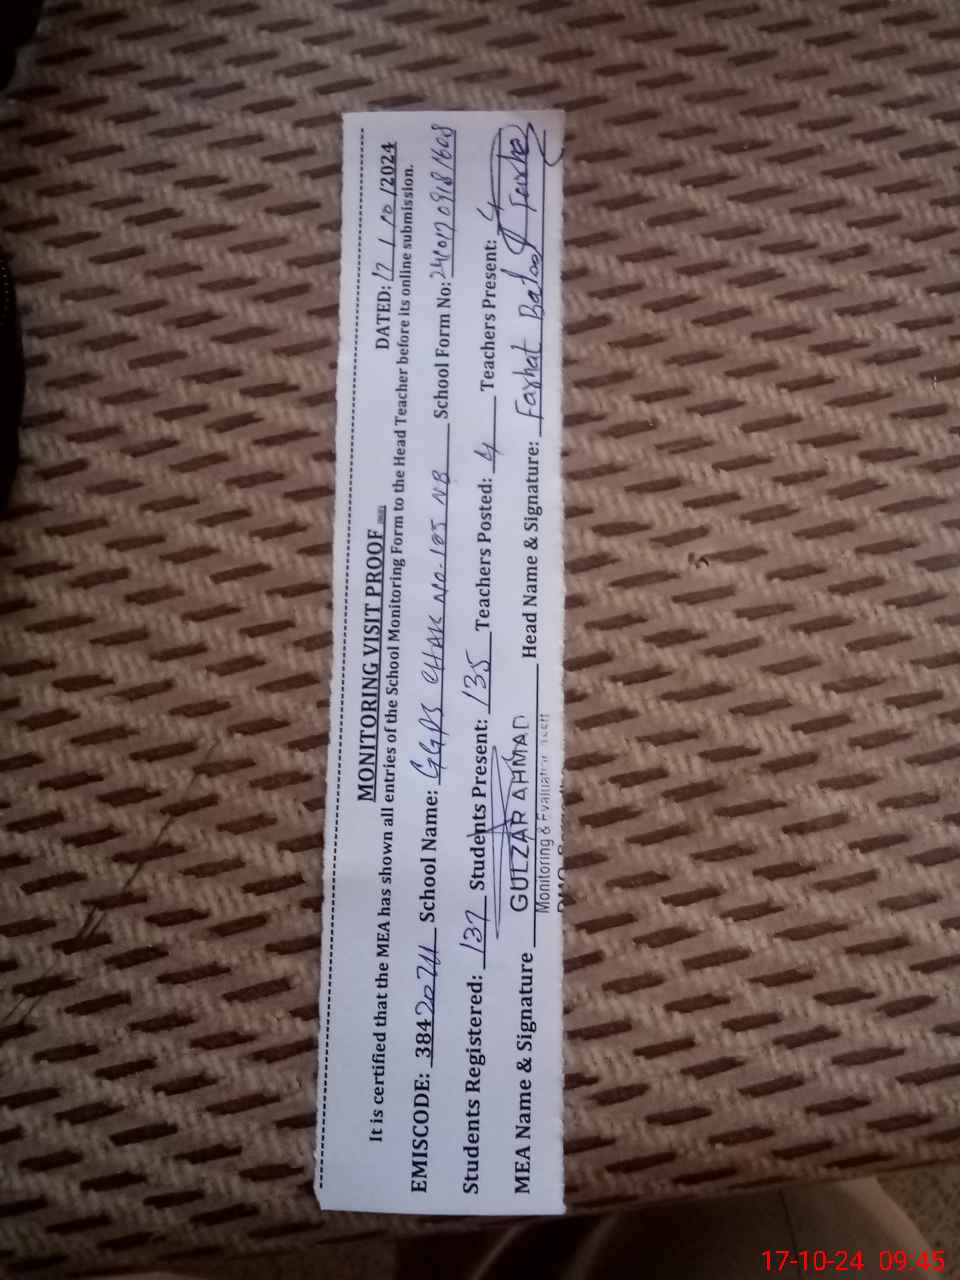 MONITORING VISIT PROOF
DATED: 17 / 10 /2024
It is certified that the MEA has shown all entries of the School Monitoring Form to the Head Teacher before its online submission.
EMISCODE: 384 School Name: GGPS CHAK NO-105 NB School Form No:
Students Registered: 137 Students Present: 135 Teachers Posted: 4 Teachers Present: 4
MEA Name & Signature GULZAR AHMAD Head Name & Signature: Farhat Batool
Monitoring & Evaluation
17-10-24 09:45